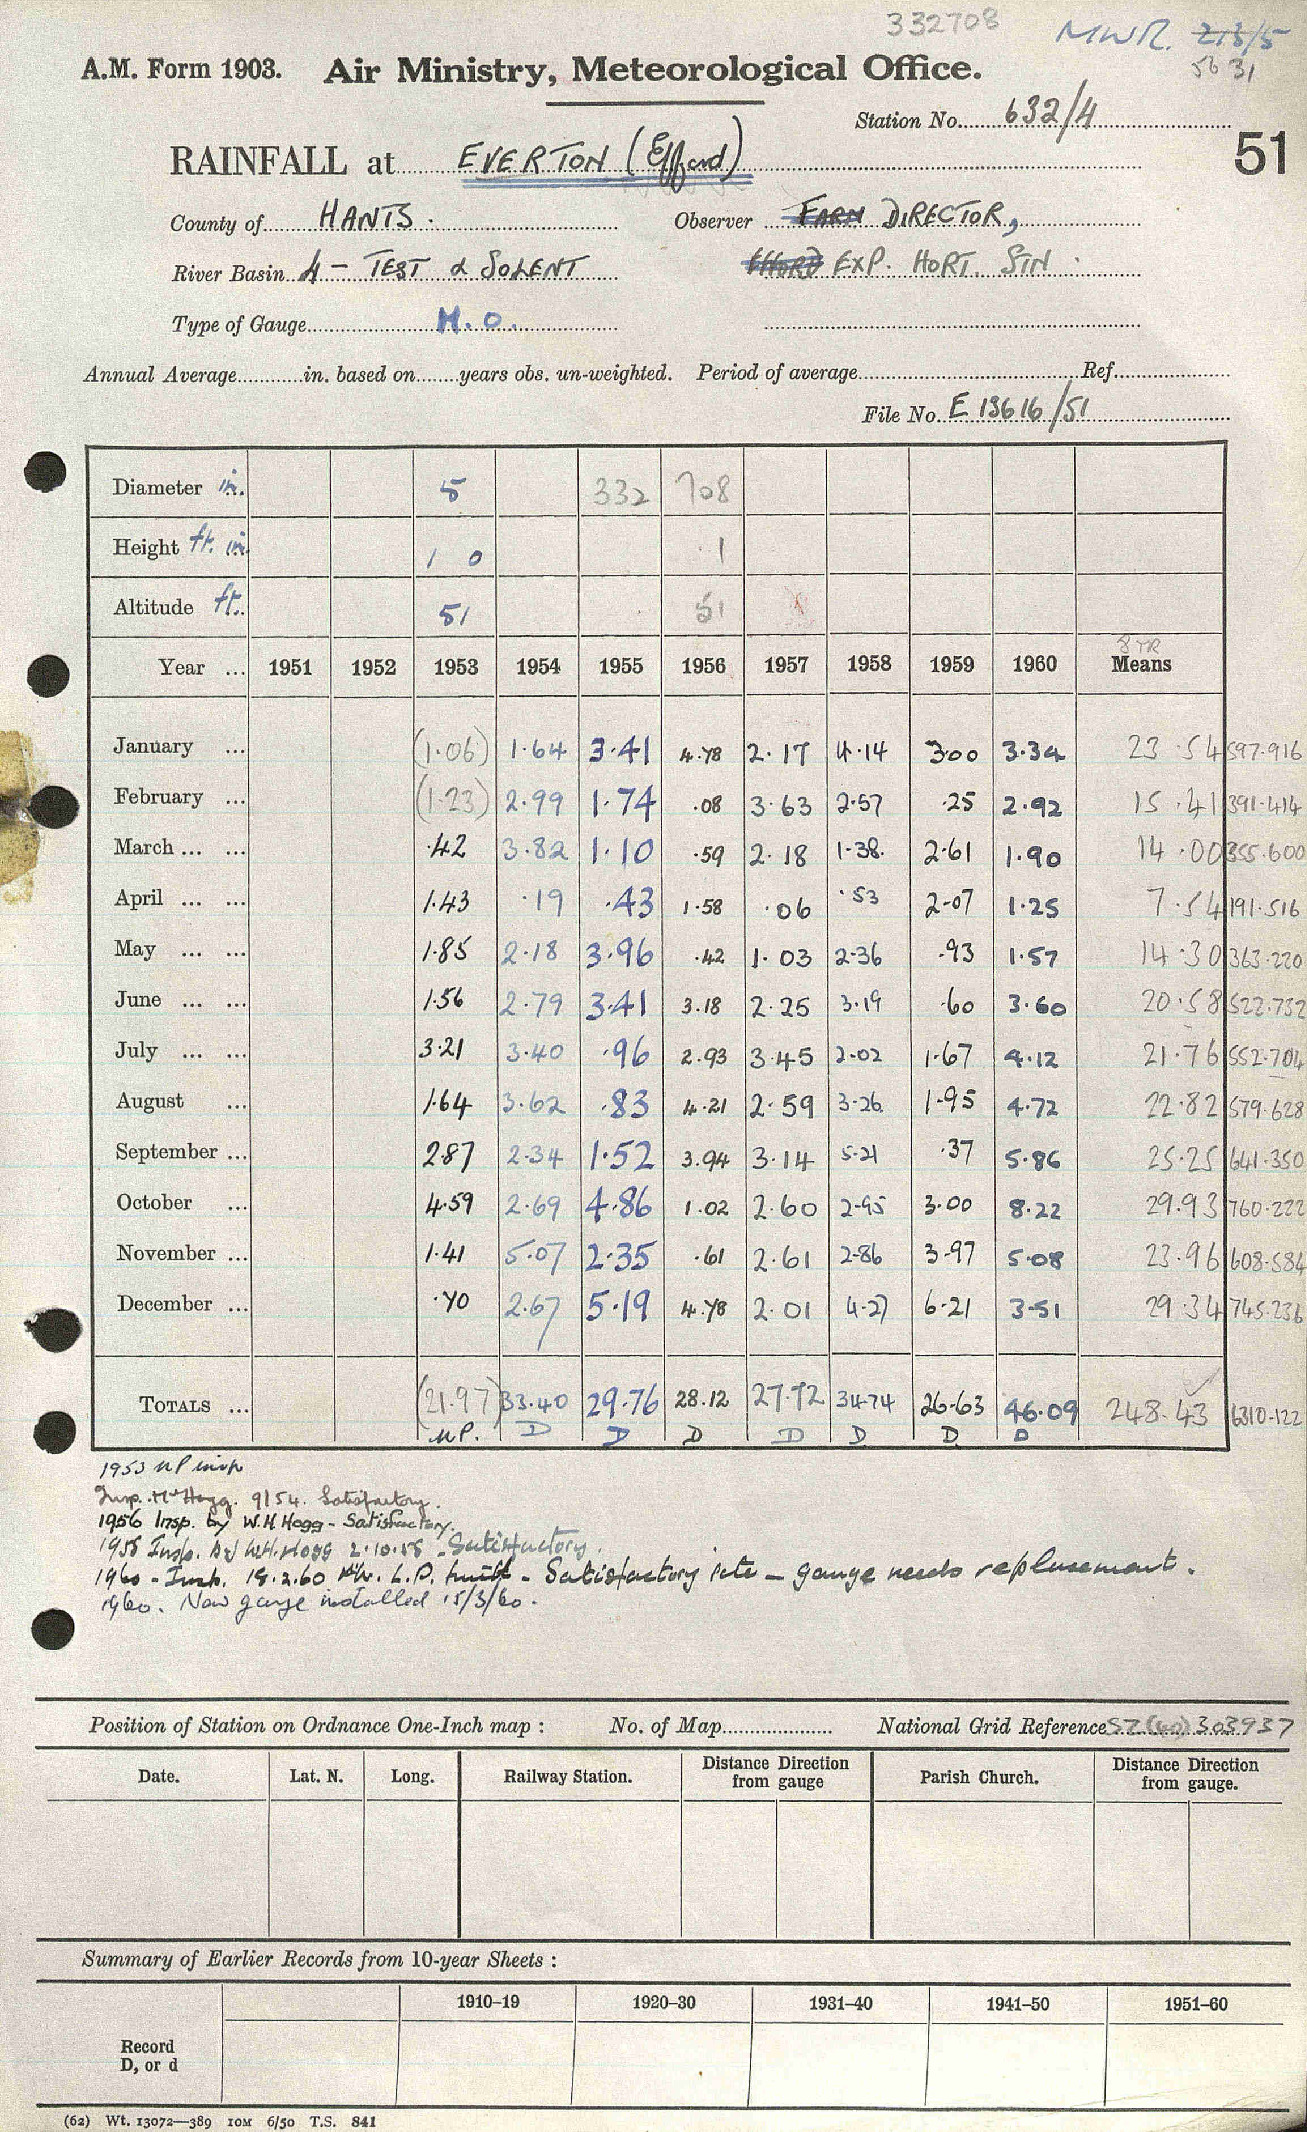 332708
MWR. 213/5
56 31
A.M. Form 1903. Air Ministry, Meteorological Office.
Station No. 632/4
51
RAINFALL at EVERTON (Efford)
County of HANTS. Observer FARM DIRECTOR,
River Basin 4 - TEST & SOLENT EXP. HORT. STN.
Type of Gauge M.O.
Annual Average in. based on years obs. un-weighted. Period of average Ref.
File No. E 13616/51
Diameter in. 5 332 708
Height ft. in. 1 0 1
Altitude ft. 51 51
8 YR
Year ... 1951 1952 1953 1954 1955 1956 1957 1958 1959 1960 Means
January ... (1.06) 1.64 3.41 4.78 2.17 4.14 3.00 3.34 23.54 597.916
February ... (1.23) 2.99 1.74 .08 3.63 2.57 .25 2.92 15.41 391.414
March ... ... .42 3.82 1.10 .59 2.18 1.38 2.61 1.90 14.00 355.600
April ... ... 1.43 .19 .43 1.58 .06 .53 2.07 1.25 7.54 191.516
May ... ... 1.85 2.18 3.96 .42 1.03 2.36 .93 1.57 14.30 363.220
June ... ... 1.56 2.79 3.41 3.18 2.25 3.19 .60 3.60 20.58 522.732
July ... ... 3.21 3.40 .96 2.93 3.45 2.02 1.67 4.12 21.76 552.704
August ... 1.64 3.62 .83 4.21 2.59 3.26 1.95 4.72 22.82 579.628
September ... 2.87 2.34 1.52 3.94 3.14 5.21 .37 5.86 25.25 641.350
October ... 4.59 2.69 4.86 1.02 2.60 2.95 3.00 8.22 29.93 760.222
November ... 1.41 5.07 2.35 .61 2.61 2.86 3.97 5.08 23.96 608.584
December ... .70 2.67 5.19 4.78 2.01 4.27 6.21 3.51 29.34 745.236
TOTALS ... (21.97) 33.40 29.76 28.12 27.72 34.74 26.63 46.09 248.43 6310.122
NP. D D D D D D D
1953 NP insp
Insp. Mr Hogg. 9/54. Satisfactory.
1956 Insp. by W.H Hogg - Satisfactory.
1958 Insp. by W.H. Hogg 2.10.58 - Satisfactory.
1960 - Insp. 18.2.60 Mr. L.P. Smith - Satisfactory site - gauge needs replacement.
1960. New gauge installed 15/3/60.
Position of Station on Ordnance One-Inch map : No. of Map National Grid Reference SZ (40) 303937
Date. Lat. N. Long. Railway Station. Distance from gauge Direction Parish Church. Distance Direction from gauge.
Summary of Earlier Records from 10-year Sheets :
1910-19 1920-30 1931-40 1941-50 1951-60
Record
D, or d
(62) Wt. 13072—389 10M 6/50 T.S. 841